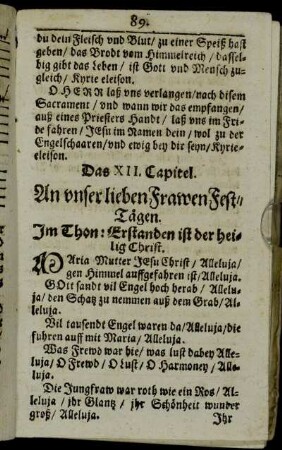 89.
du dein Fleisch vnd Blut/ zu einer Speiß hast
geben/ das Brodt vom Himmelreich/ dassel-
big gibt das Leben/ ist Gott vnd Mensch zu-
gleich/ Kyrie eleison.
O HERR laß vns verlangen/ nach disem
Sacrament/ vnd wann wir das empfangen/
auß eines Priesters Handt/ laß vns im Fri-
de fahren/ JEsu im Namen dein/ wol zu der
Engelschaaren/ vnd ewig bey dir seyn/ Kyrie-
eleison.
Das XII. Capitel.
An vnser lieben Frawen Fest-
Tägen.
Im Thon: Erstanden ist der hei-
lig Christ.
MAria Mutter JEsu Christ/ Alleluja/
gen Himmel auffgefahren ist/ Alleluja.
GOtt sandt vil Engel hoch herab/ Allelu-
ja/ den Schatz zu nemmen auß dem Grab/ Al-
leluja.
Vil tausendt Engel waren da/ Alleluja/ die
fuhren auff mit Maria/ Alleluja.
Was Frewd war hie/ was lust dabey Alle-
luja/ O Frewd/ O Lust/ O Harmoney/ Alle-
luja.
Die Jungfraw war roth wie ein Ros/ Al-
leluja/ jhr Glantz/ jhr Schönheit wunder
groß/ Alleluja.
Ihr